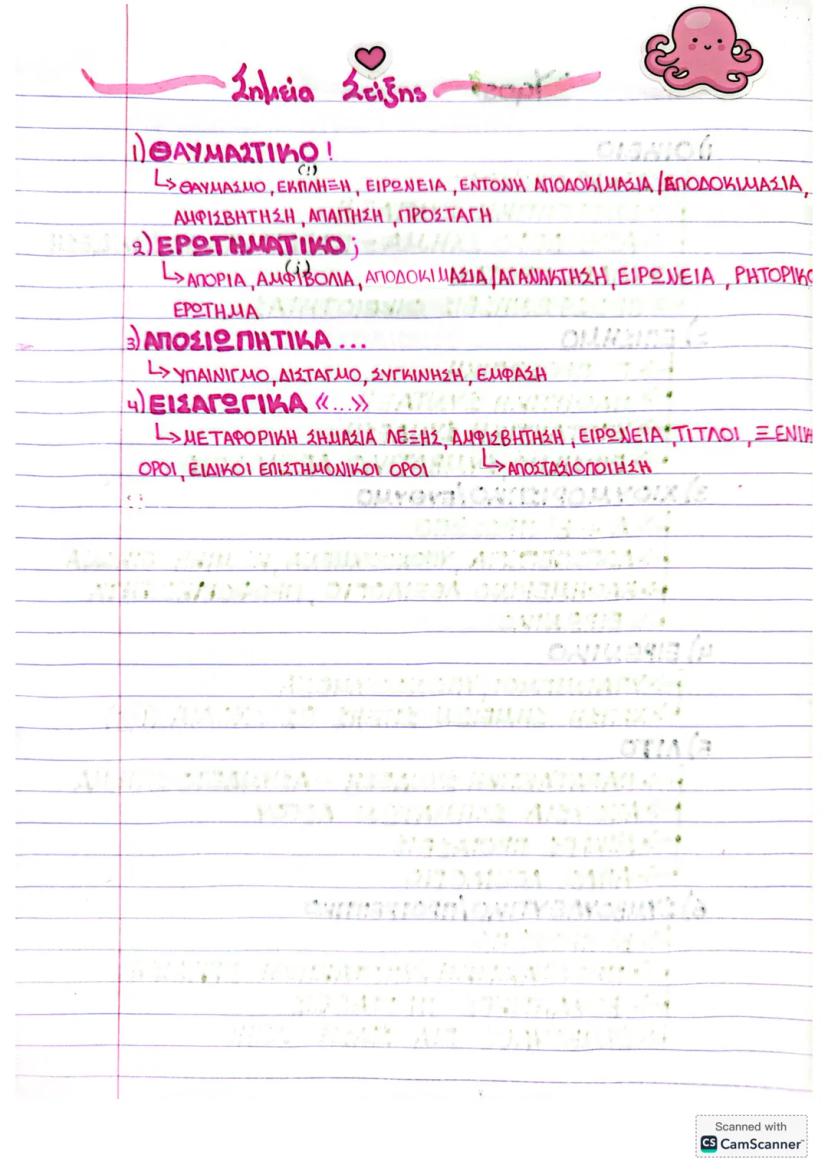 Σημεία Στίξης
1) ΘΑΥΜΑΣΤΙΚΟ !
(!)
↳ ΘΑΥΜΑΣΜΟ, ΕΚΠΛΗΞΗ, ΕΙΡΩΝΕΙΑ, ΕΝΤΟΝΗ ΑΠΟΔΟΚΙΜΑΣΙΑ/ΕΠΟΔΟΚΙΜΑΣΙΑ,
ΑΜΦΙΣΒΗΤΗΣΗ, ΑΠΑΙΤΗΣΗ, ΠΡΟΣΤΑΓΗ
2) ΕΡΩΤΗΜΑΤΙΚΟ ;
(;)
↳ ΑΠΟΡΙΑ, ΑΜΦΙΒΟΛΙΑ, ΑΠΟΔΟΚΙΜΑΣΙΑ/ΑΓΑΝΑΚΤΗΣΗ, ΕΙΡΩΝΕΙΑ, ΡΗΤΟΡΙΚΟ
ΕΡΩΤΗΜΑ
3) ΑΠΟΣΙΩΠΗΤΙΚΑ ...
↳ ΥΠΑΙΝΙΓΜΟ, ΔΙΣΤΑΓΜΟ, ΣΥΓΚΙΝΗΣΗ, ΕΜΦΑΣΗ
4) ΕΙΣΑΓΩΓΙΚΑ «...»
↳ ΜΕΤΑΦΟΡΙΚΗ ΣΗΜΑΣΙΑ ΛΕΞΗΣ, ΑΜΦΙΣΒΗΤΗΣΗ, ΕΙΡΩΝΕΙΑ, ΤΙΤΛΟΙ, ΞΕΝΙΚ
ΟΡΟΙ, ΕΙΔΙΚΟΙ ΕΠΙΣΤΗΜΟΝΙΚΟΙ ΟΡΟΙ ↳ ΑΠΟΣΤΑΣΙΟΠΟΙΗΣΗ
Scanned with
CS CamScanner